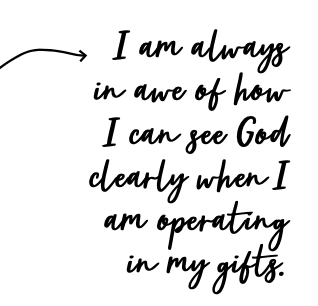 I am always
in awe of how
I can see God
clearly when I
am operating
in my gifts.